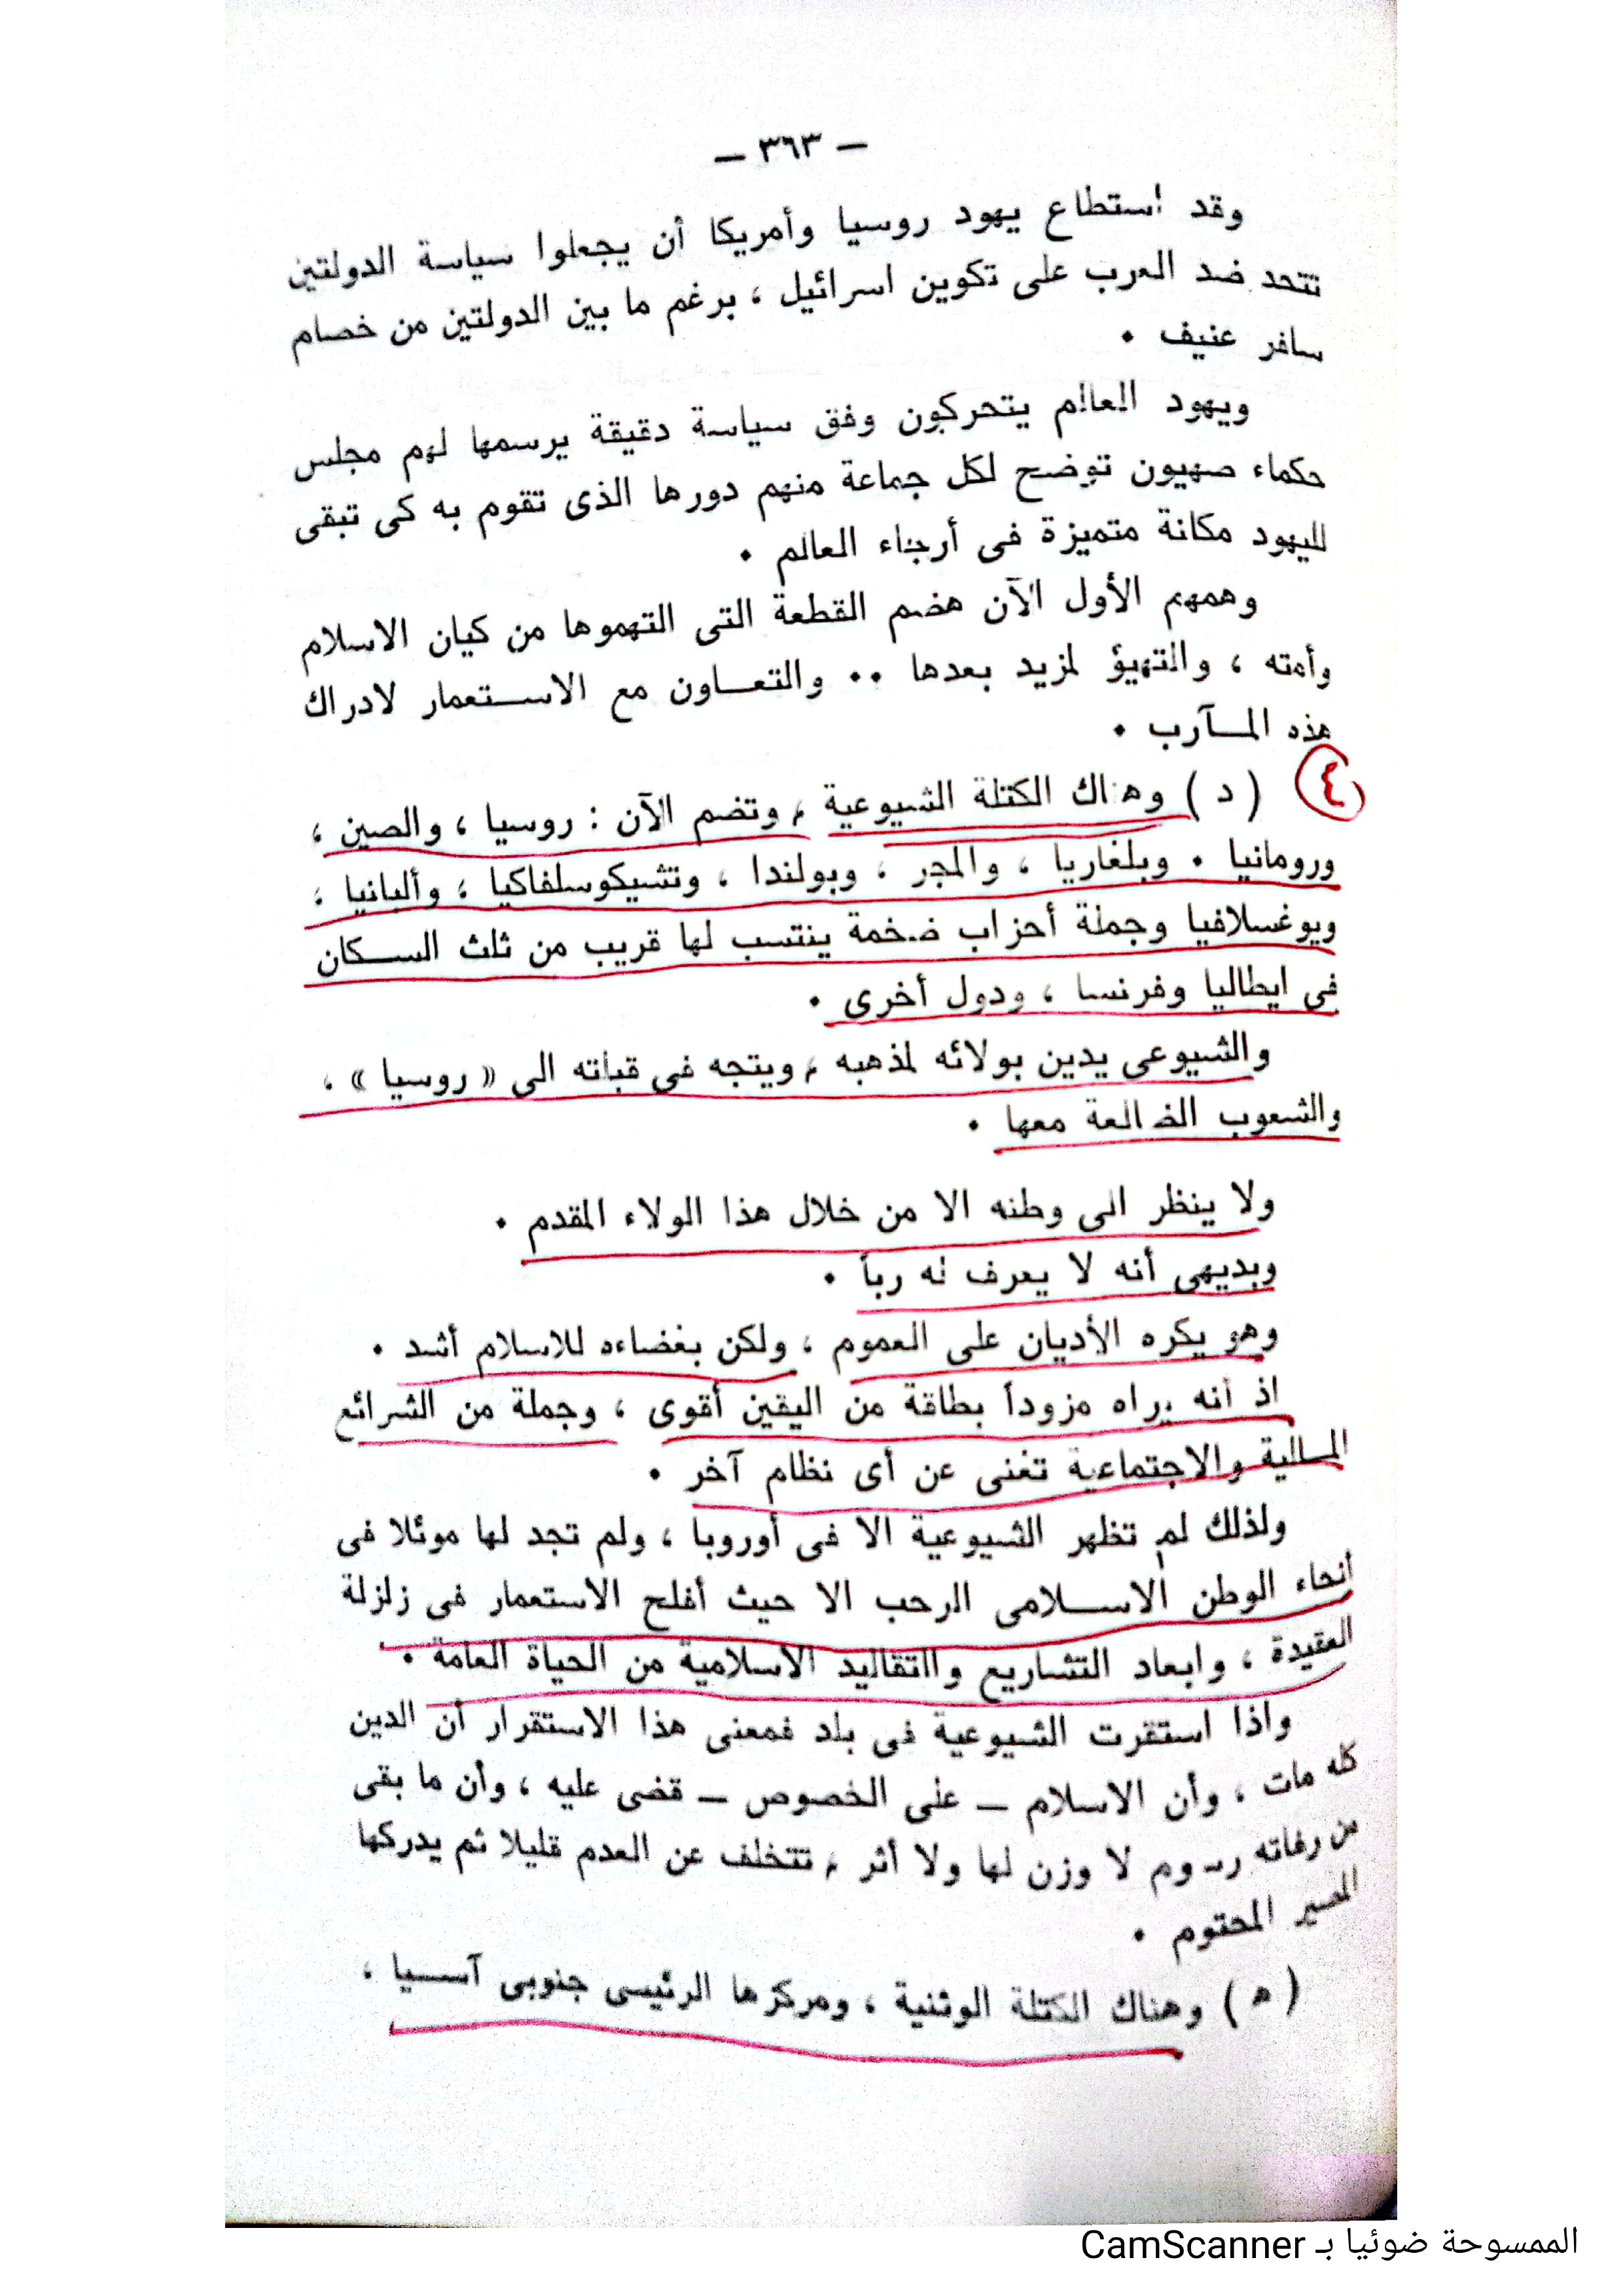 — ٣٦٣ —
وقد استطاع يهود روسيا وأمريكا أن يجعلوا سياسة الدولتين
تتحد ضد العرب على تكوين اسرائيل ، برغم ما بين الدولتين من خصام
سافر عنيف .
ويهود العالم يتحركون وفق سياسة دقيقة يرسمها لهم مجلس
حكماء صهيون توضح لكل جماعة منهم دورها الذى تقوم به كى تبقى
لليهود مكانة متميزة فى أرجاء العالم .
وهمهم الأول الآن هضم القطعة التى التهموها من كيان الاسلام
وأمته ، والتهيؤ لمزيد بعدها .. والتعاون مع الاستعمار لادراك
هذه المآرب .
٤ ( د ) وهناك الكتلة الشيوعية ، وتضم الآن : روسيا ، والصين ،
ورومانيا . وبلغاريا ، والمجر ، وبولندا ، وتشيكوسلفاكيا ، وألبانيا ،
ويوغسلافيا وجملة أحزاب ضخمة ينتسب لها قريب من ثلث السكان
فى ايطاليا وفرنسا ، ودول أخرى .
والشيوعى يدين بولائه لمذهبه ، ويتجه فى قباته الى « روسيا » .
والشعوب الضالعة معها .
ولا ينظر الى وطنه الا من خلال هذا الولاء المقدم .
وبديهى أنه لا يعرف له رباً .
وهو يكره الأديان على العموم ، ولكن بغضاءه للاسلام أشد .
اذ أنه يراه مزوداً بطاقة من اليقين أقوى ، وجملة من الشرائع
المالية والاجتماعية تغنى عن أى نظام آخر .
ولذلك لم تظهر الشيوعية الا فى أوروبا ، ولم تجد لها موئلا فى
أنحاء الوطن الاسلامى الرحب الا حيث أفلح الاستعمار فى زلزلة
العقيدة ، وابعاد التشاريع والتقاليد الاسلامية من الحياة العامة .
واذا استقرت الشيوعية فى بلد فمعنى هذا الاستقرار أن الدين
كله مات ، وأن الاسلام — على الخصوص — قضى عليه ، وأن ما بقى
من رفاته رسوم لا وزن لها ولا أثر ، تتخلف عن العدم قليلا ثم يدركها
المصير المحتوم .
( ه ) وهناك الكتلة الوثنية ، ومركزها الرئيسى جنوبى آسيا ،
الممسوحة ضوئيا بـ CamScanner